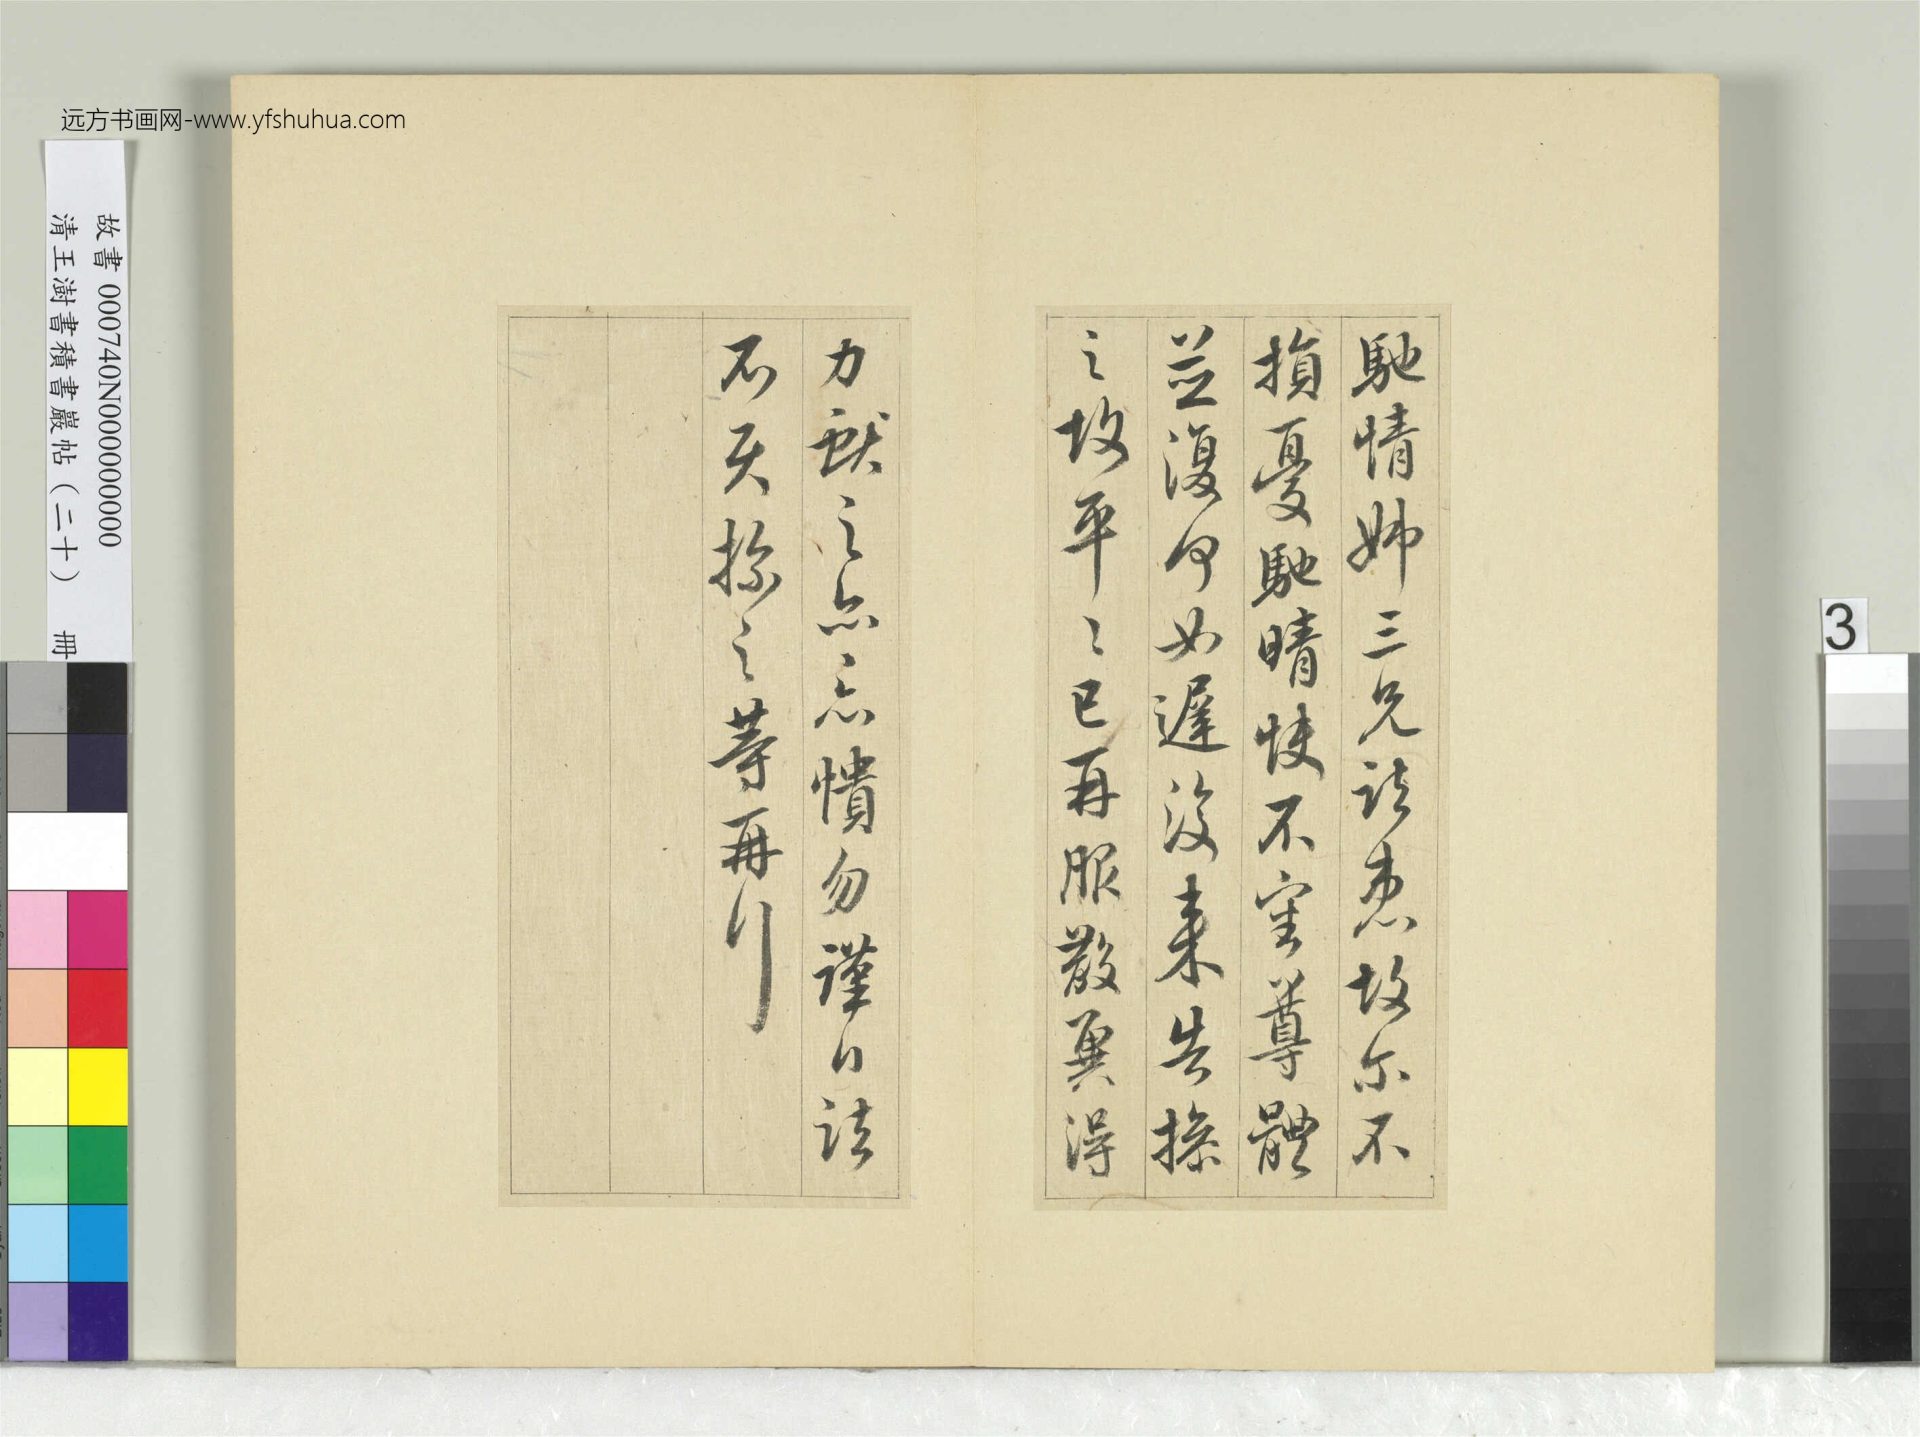 远方书画网-www.yfshuhua.com
故書 000740N000000000
清王澍書積書巖帖(二十) 冊
3
馳情姊三兄諸患故尔不
損憂馳晴快不審尊體
並復何如遲復來告操
之故平ミ已再服散冀得
力獻之忽忽憒勿謹白諸
不具操之等再拜